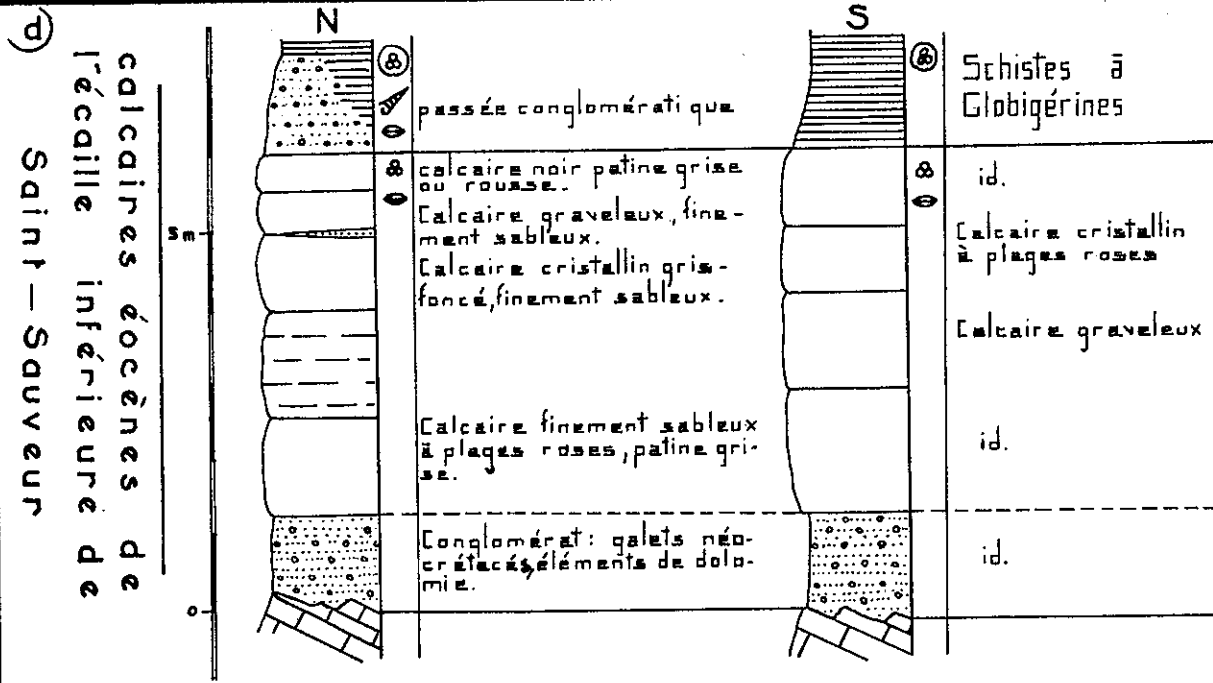 d
calcaires éocènes de
l'écaille inférieure de
Saint-Sauveur
5m
0
N
passée conglomératique
calcaire noir patine grise
ou rousse.
Calcaire graveleux, fine-
ment sableux.
Calcaire cristallin gris-
foncé, finement sableux.
Calcaire finement sableux
à plages roses, patine gri-
se.
Conglomérat: galets néo-
crétacés, éléments de dolo-
mie.
S
Schistes à
Globigérines
id.
Calcaire cristallin
à plages roses
Calcaire graveleux
id.
id.